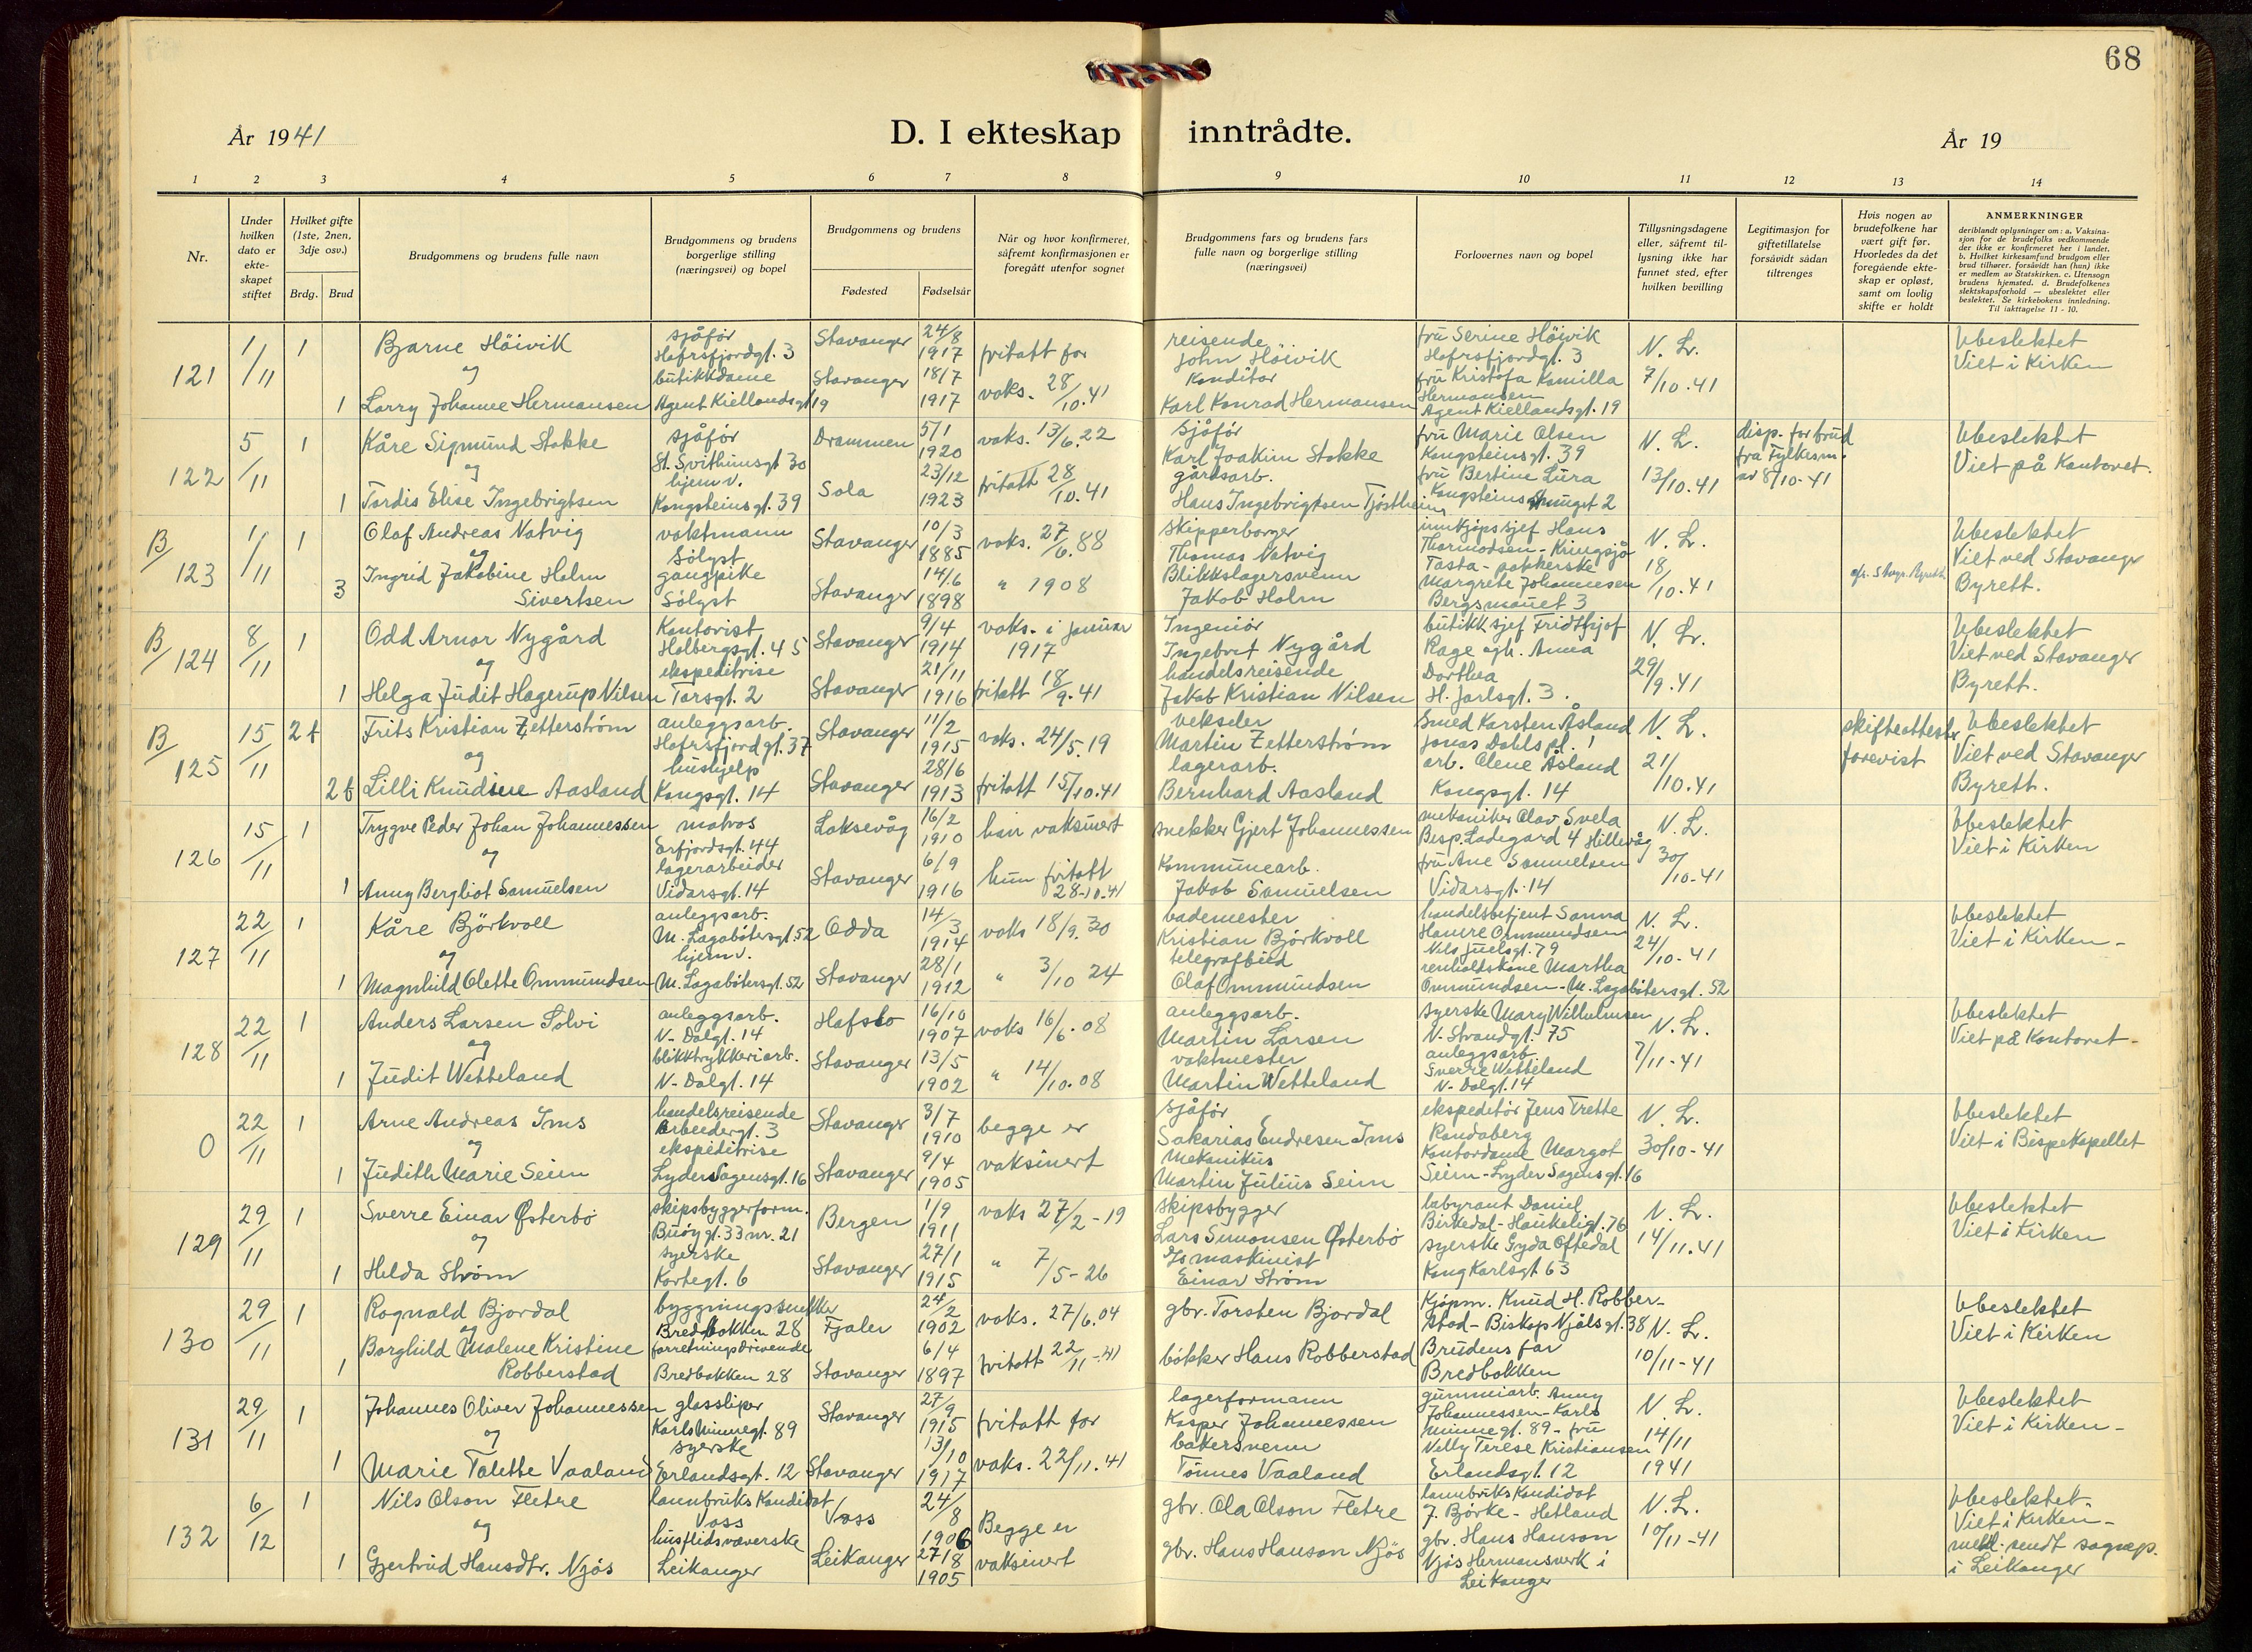 68
År 1941 D. I ekteskap inntrådte. År 19
1 2 3 4 5 6 7 8 9 10 11 12 13 14
Nr.
Under hvilken dato er ekte-skapet stiftet
Hvilket gifte (1ste, 2nen, 3dje osv.)
Brdg. Brud
Brudgommens og brudens fulle navn
Brudgommens og brudens borgerlige stilling (næringsvei) og bopel
Brudgommens og brudens
Fødested Fødselsår
Når og hvor konfirmeret, såfremt konfirmasjonen er foregått utenfor sognet
Brudgommens fars og brudens fars fulle navn og borgerlige stilling (næringsvei)
Forlovernes navn og bopel
Tillysningsdagene eller, såfremt til-lysning ikke har funnet sted, efter hvilken bevilling
Legitimasjon for giftetillatelse forsåvidt sådan tiltrenges
Hvis nogen av brudefolkene har vært gift før. Hvorledes da det foregående ekte-skap er opløst, samt om lovlig skifte er holdt
ANMERKNINGER
deriblandt oplysninger om: a. Vaksina-sjon for de brudefolks vedkommende der ikke er konfirmeret her i landet. b. Hvilket kirkesamfund brudgom eller brud tilhører, forsåvidt han (hun) ikke er medlem av Statskirken. c. Utensogn brudens hjemsted. d. Brudefolkenes slektskapsforhold — ubeslektet eller beslektet. Se kirkebokens innledning. Til iakttagelse 11 - 10.
121 1/11 1 Bjarne Höivik sjåför Hafrsfjordgt. 3 Stavanger 24/8 1917 fritatt for
og
1 Larry Johanne Hermansen butikkdame Agent Kiellandsgt 19 Stavanger 18/7 1917 vaks. 28/10.41
reisende John Höivik
Konditor Karl Konrad Hermansen
fru Serine Höivik Hafrsfjordgt. 3
fru Kristofa Kamilla Hermansen Agent Kiellandsgt. 19
N. L. 7/10.41
Ubeslektet Viet i Kirken
122 5/11 1 Kåre Sigmund Stokke sjåför St. Svithunsgt 30 Drammen 5/1 1920 vaks. 13/6.22
og
1 Tordis Elise Ingebrigtsen hjemv. Kongsteinsgt. 39 Sola 23/12 1923 fritatt 28/10.41
sjåför Karl Joakim Stokke
gårdsarb. Hans Ingebrigtsen Tjöstheim
fru Marie Olsen Kongsteinsgt. 39
fru Bertine Lura 2
N. L. 13/10.41
disp. for brud fra Fylkesm. av 8/10-41
Ubeslektet Viet på Kontoret.
B/123 1/11 1 Olaf Andreas Natvig vaktmann Sölyst Stavanger 10/3 1885 vaks. 27/6.88
og
3 Ingrid Jakobine Holm Sivertsen gangpike Sölyst Stavanger 14/6 1898 " 1908
skipperborger Thomas Natvig
Blikkslagersvenn Jakob Holm
innkjöpssjef Hans Thormodsen - Kringsjå Tasta - pakkerske
Margrete Johannesen Bergsmauet 3
N. L. 18/10.41
Ubeslektet Viet ved Stavanger Byrett.
B/124 8/11 1 Odd Arnor Nygård Kontorist Holbergsgt. 45 Stavanger 9/4 1914 vaks. i januar 1917
og
1 Helga Judit Hagerup Nilsen ekspeditrise Torsgt. 2 Stavanger 21/11 1916 fritatt 18/9.41
Ingeniör Ingebret Nygård
handelsreisende Jakob Kristian Nilsen
butikksjef Fridthjof Rage Anna Dorthea H. Jarlsgt. 3.
N. L. 29/9.41
Ubeslektet Viet ved Stavanger Byrett.
B/125 15/11 2 f Frits Kristian Zetterström anleggsarb. Hafrsfjordgt. 37 Stavanger 11/2 1915 vaks. 24/5.19
og
2 f Lilli Knudine Aasland hushjelp Kongsgt. 14 Stavanger 28/6 1913 fritatt 15/10.41
Martin Zetterström
lagerarb. Bernhard Aasland
Smed Karsten Åsland Jonas Dahls pl. 1
arb. Olene Åsland Kongsgt. 14
N. L. 21/10.41
skifteattester forevist
Ubeslektet Viet ved Stavanger Byrett.
126 15/11 1 Trygve Peder Johan Johannessen matros Erfjordsgt. 44 Laksevåg 16/2 1910 han vaksinert
og
1 Anny Bergliot Samuelsen lagerarbeider Vidarsgt. 14 Stavanger 6/9 1916 hun fritatt 28-10.41
snekker Gjert Johannessen
Kommunearb. Jakob Samuelsen
mekaniker Olav Svela Bisp. Ladegard 4 Hillevåg
fru Ane Samuelsen Vidarsgt. 14
N. L. 30/10-41
Ubeslektet Viet i Kirken
127 22/11 1 Kåre Björkvoll anleggsarb. M. Lagabötersgt. 52 Odda 14/3 1914 vaks 18/9.30
og
1 Magnhild Olette Ommundsen hjemv. M. Lagabötersgt. 52 Stavanger 28/1 1912 " 3/10 24
bademester Kristian Björkvoll
telegrafbud Olaf Ommundsen
handelsbetjent Sanna Hanne Ommundsen Nils Juelsgt. 79
renholdskone Martha Ommundsen - M. Lagabötersgt. 52
N. L. 24/10-41
Ubeslektet Viet i Kirken -
128 22/11 1 Anders Larsen Solvi anleggsarb. N. Dalgt. 14 Hafslo 16/10 1907 vaks 16/6.08
og
1 Judit Wetteland blikktrykkeriarb. N. Dalgt. 14 Stavanger 13/5 1902 " 14/10.08
anleggsarb. Martin Larsen
vaktmester Martin Wetteland
syerske Mary Wilhelmsen N. Strandgt. 75
anleggsarb. Sverre Wetteland N. Dalgt. 14
N. L. 7/11-41
Ubeslektet Viet på Kontoret -
0 22/11 1 Arne Andreas Ims handelsreisende Arbeidergt. 3 Stavanger 3/7 1910 begge er
og
1 Judith Marie Seim ekspeditrise Lyder Sagensgt. 16 Stavanger 9/4 1905 vaksinert
sjåför Sakarias Endresen Ims
Mekanikus Martin Julius Seim
ekspeditör Jens Trette Randaberg
Kontordame Margot Seim - Lyder Sagensgt. 16
N. L. 30/10-41
Ubeslektet Viet i Bispekapellet
129 29/11 1 Sverre Einar Østerbö skipsbyggerform. Buöygt. 33 nr. 21 Bergen 1/9 1911 vaks 27/2-19
og
1 Helda Ström syerske Kortegt. 6 Stavanger 27/1 1915 " 7/5-26
skipsbygger Lars Simonsen Østerbö
maskinist Einar Ström
labyrant Daniel Birkedal - Haukeligt. 76
syerske Gyda Oftedal Kong Karlsgt 63
N. L. 14/11.41
Ubeslektet Viet i Kirken
130 29/11 1 Rognald Bjordal byggningssnekker Bredbakken 28 Fjaler 24/2 1902 vaks. 27/6.04
og
1 Borghild Malene Kristine Robberstad forretningsdrivende Bredbakken 28 Stavanger 6/4 1897 fritatt 22/11-41
gbr. Torsten Bjordal
bökker Hans Robberstad
Kjöpm. Knud H. Robber-stad - Biskop Njålsgt. 38
Brudens far Bredbakken
N. L. 10/11-41
Ubeslektet Viet i Kirken
131 29/11 1 Johannes Oliver Johannessen glassliper Karlsminnegt. 89 Stavanger 27/9 1915 fritatt for
og
1 Marie Talette Vaaland syerske Erlandsgt. 12 Stavanger 13/10 1917 vaks. 22/11.41
lagerformann Kasper Johannessen
bakersvenn Tönnes Vaaland
gummiarb. Anny Johannessen - Karls minnegt. 89 - fru
Velly Terese Kristiansen Erlandsgt. 12
N. L. 14/11 1941
Ubeslektet Viet i Kirken -
132 6/12 1 Nils Olson Fletre lannbrukskandidat Voss Voss 24/8 1906 Begge er
og
1 Gjertrud Hansdtr. Njös husflidsvæverske Leikanger Leikanger 27/8 1905 vaksinert
gbr. Ola Olson Fletre
gbr. Hans Hanson Njös
lannbrukskandidat J. Björke - Hetland
gbr. Hans Hanson Njös Hermansverk i Leikanger
N. L. 10/11-41
Ubeslektet. Viet i Kirken - meld. sendt sognep. i Leikanger